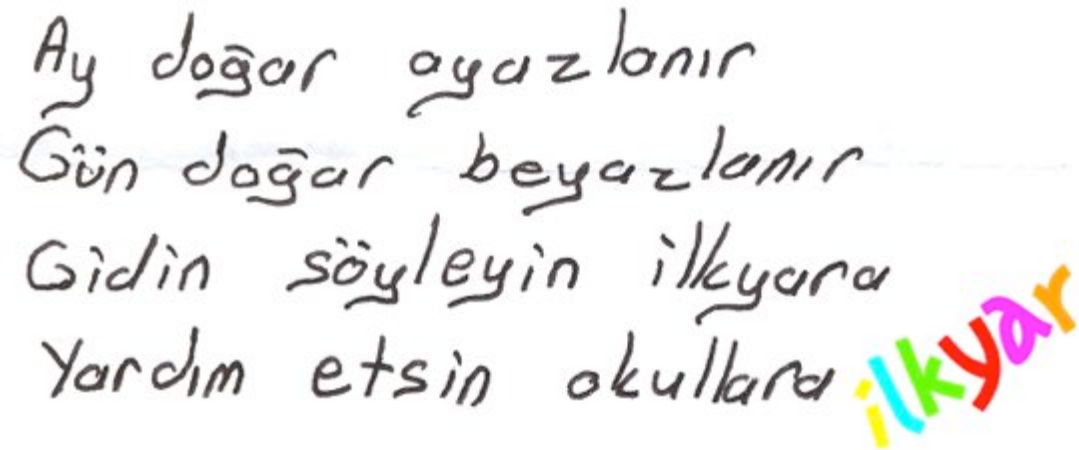 Ay doğar ayazlanır
Gün doğar beyazlanır
Gidin söyleyin ilkyara
Yardım etsin okullara
ilkyar